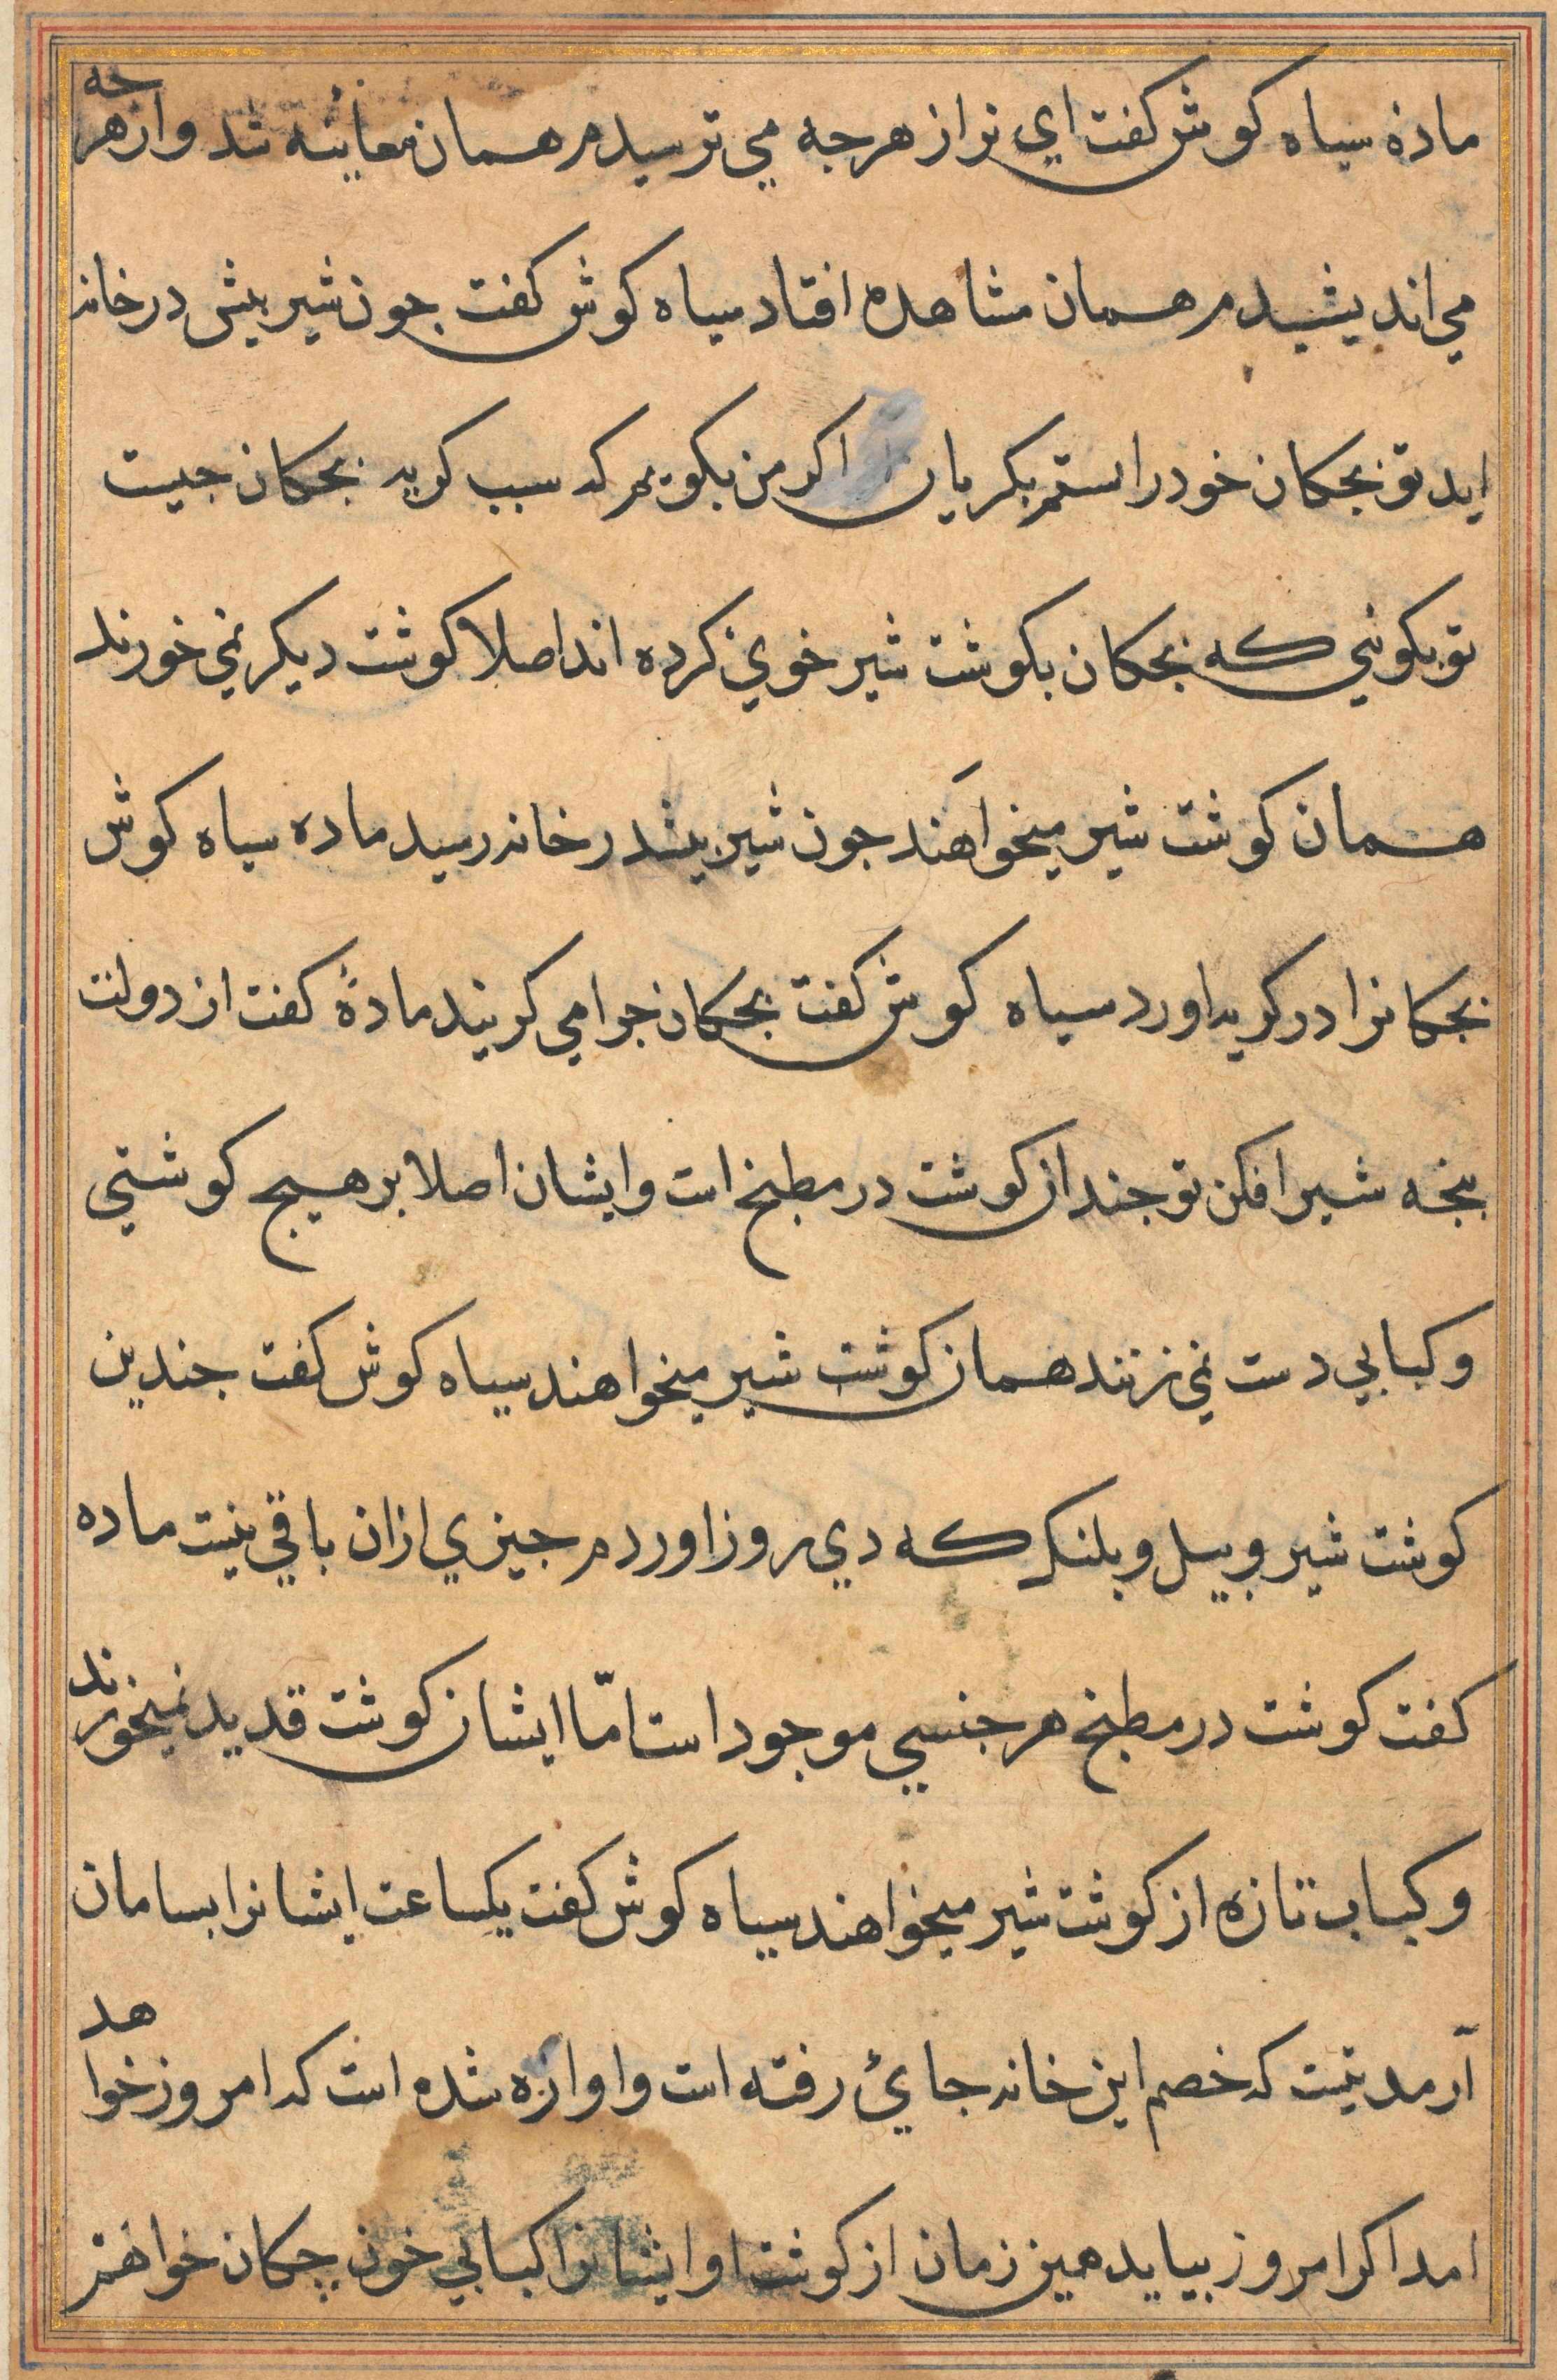 ماده سیاه کوش کفت ای نر از هرجه می ترسیدم همان معاینه شد و از هرجه
می اندیشیدم همان مشاهده افتاد سیاه کوش کفت جون شیر بیش در خانه
اید تو بجکان خود را ستم بکریان اکر من بکویم که سبب کریه بجکان جیست
تو بکوئی که بجکان بکوشت شیر خوی کرده اند اصلا کوشت دیکر نمی خورند
همان کوشت شیر میخواهند جون شیر بیش در خانه رسید ماده سیاه کوش
بجکانرا در کریه اورد سیاه کوش کفت بجکان جرا می کریند ماده کفت از دولت
بنجه شیر افکن تو جندان کوشت در مطبخ است و ایشان اصلا بر هیج کوشتی
و کبابی دست نمی زنند همان کوشت شیر میخواهند سیاه کوش کفت جندین
کوشت شیر و بیل و بلنک که دی روز اوردم جیزی ازان باقی نیست ماده
کفت کوشت در مطبخ هر جنسی موجود است امّا ایشان کوشت قدید نمیخورند
و کباب تازه از کوشت شیر میخواهند سیاه کوش کفت یکساعت ایشانرا بسامان
آر مدتیست که خصم این خانه جائ رفته است و اوازه شده است که امروز خواهد
امد اکر امروز بیاید همین زمان از کوشت او ایشانرا کبابی خون چکان خواهم